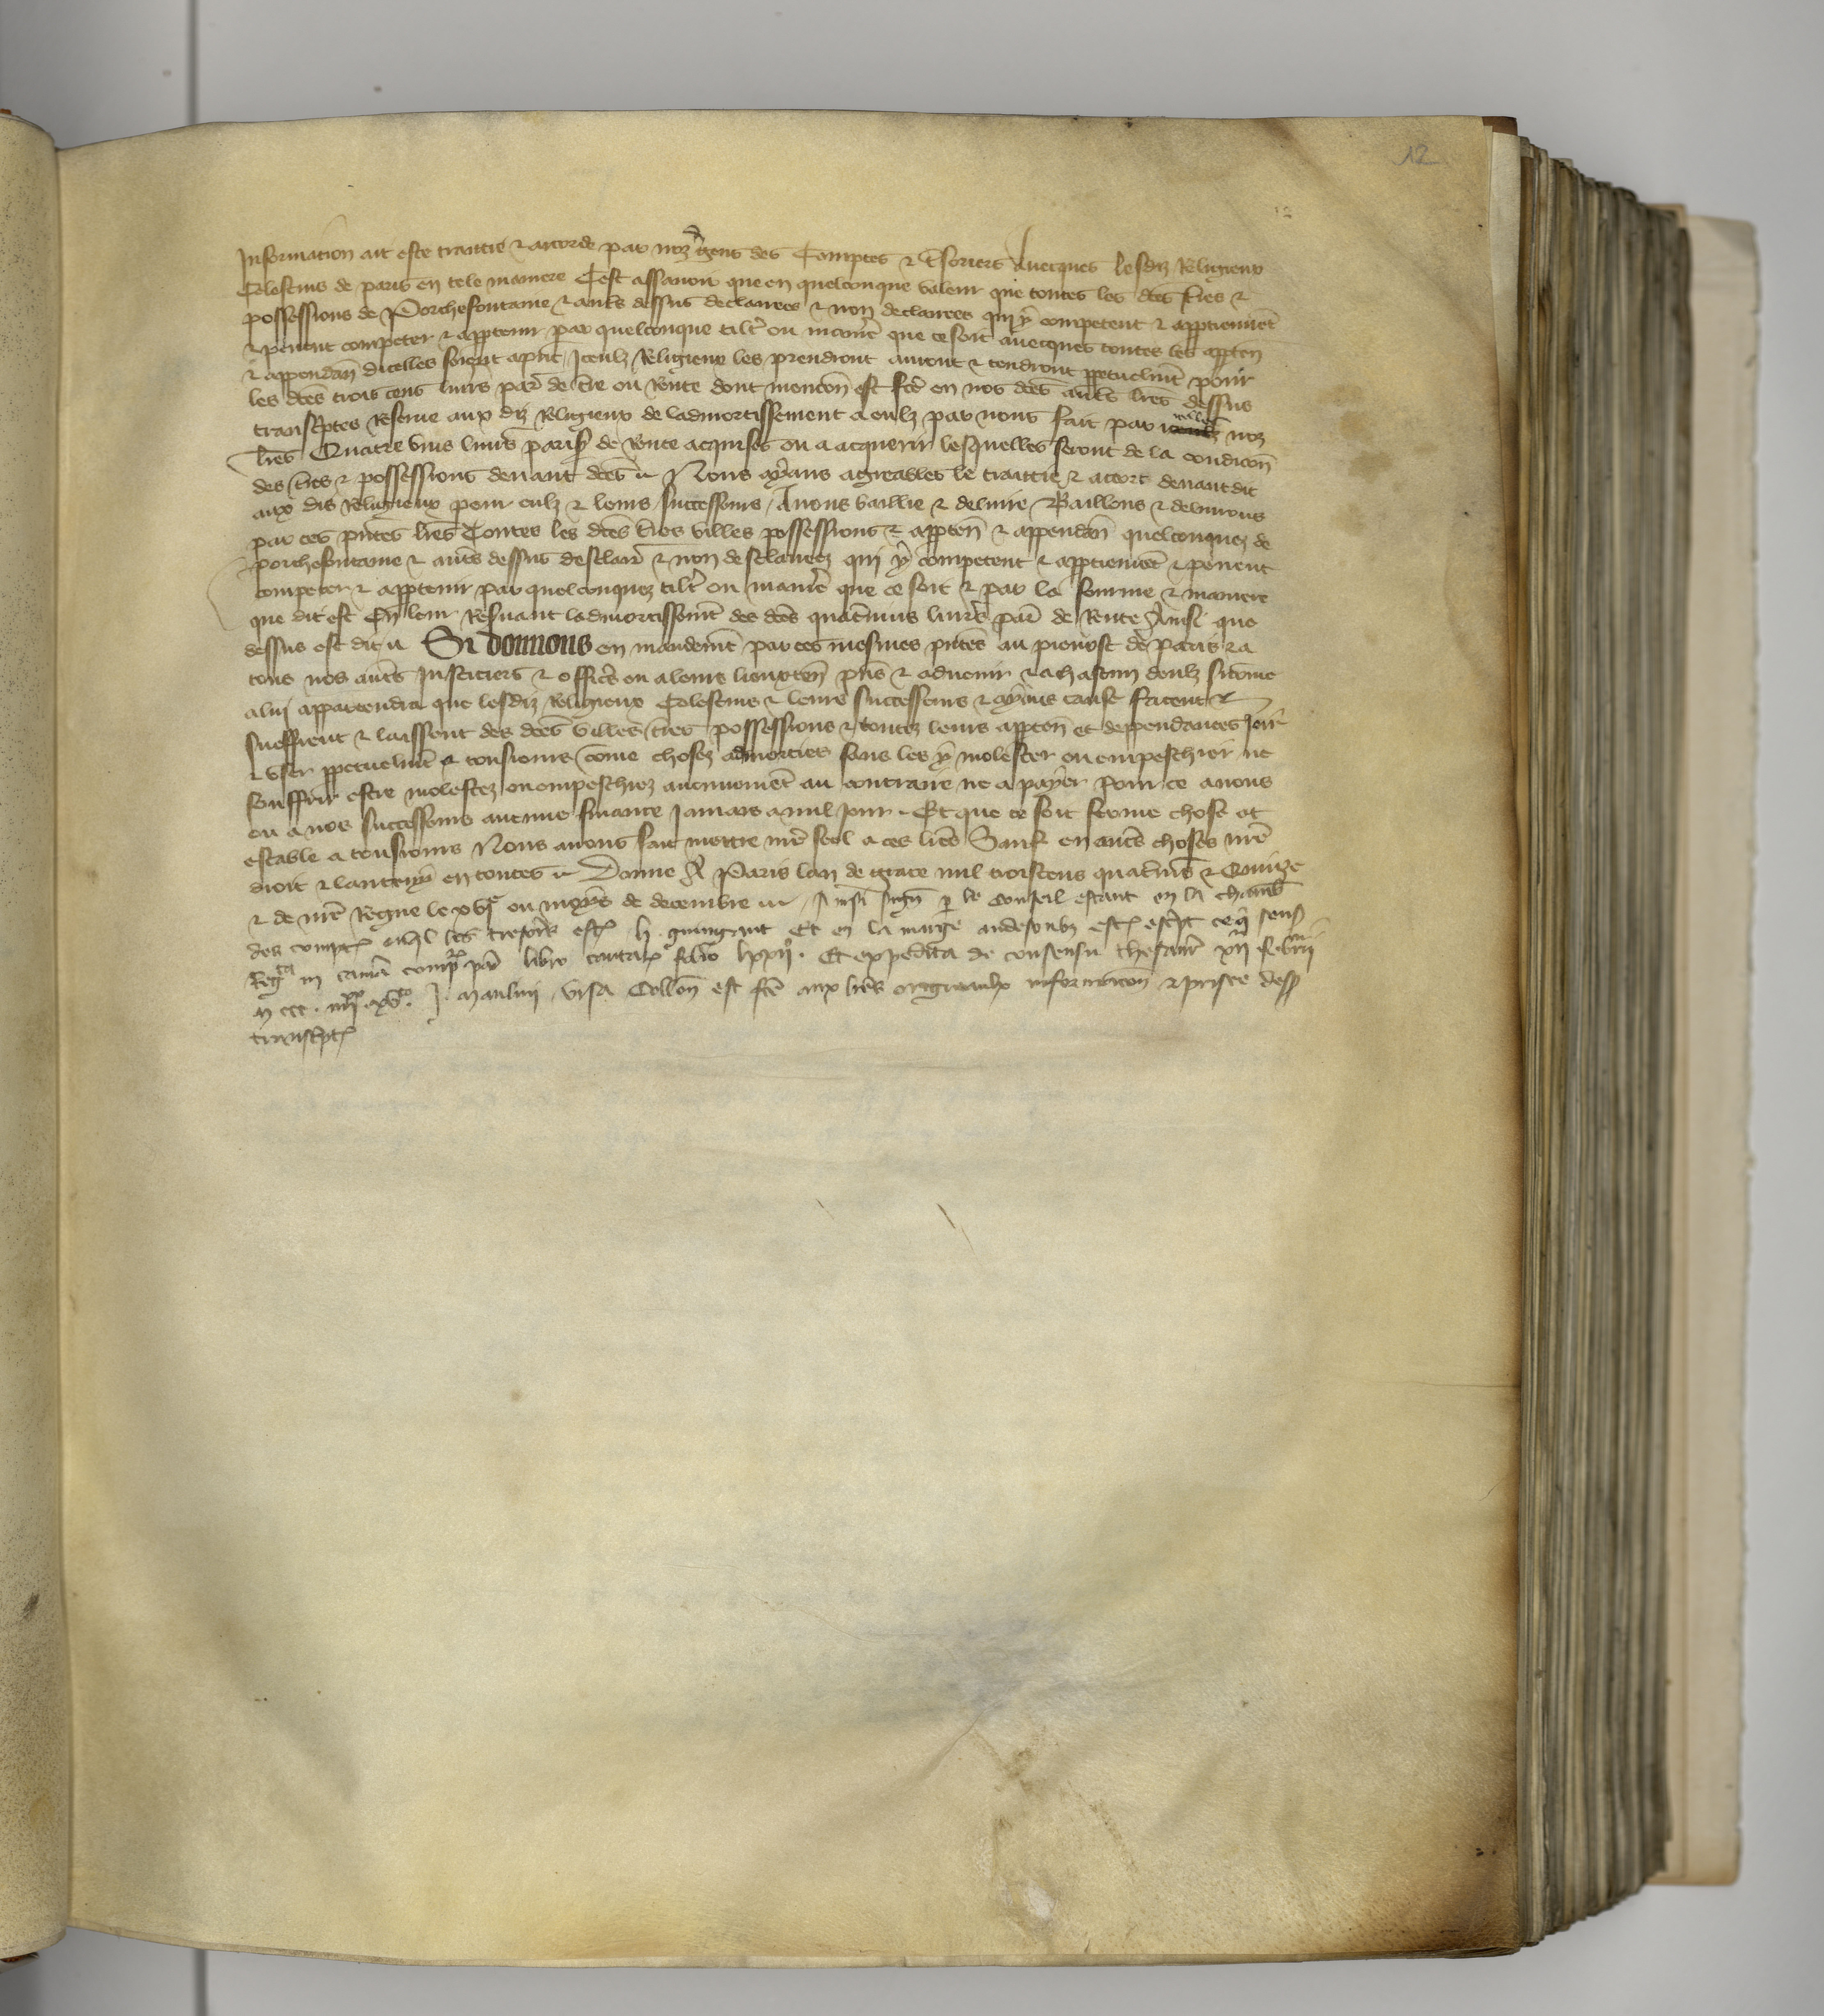 12
Information ait este traittie & accorde par noz gens des Comptes & tresoriers Avecques lesdiz Religieux
Celestins de paris en tele maniere Cest assavoir que en quelconque valeur que toutes les dces tres &
possessions de Porchefontaine & autres dessus declarees & non declarees qui y competent & apptiennent
& peuent competer & apptenir par quelconque tiltre ou maniere que ce soit avecques toutes les appten
& appendan dicelles soient Iceulz Religieux les prendront auront & tendront ppetuelmt pour
les dces trois cens livres par de tre ou Rente dont mencon est fce en nos dces autres lres dessus
transcptes Reserue aux diz Religieux de ladmortissement a eulz par nous fait par noz
lres Quatre vins livres paris de Rente acquises ou a acquerir lesquelles seront de la condicon
des tres & possessions devant dces Nous ayans agreables le traittie & accort devant dit
aux dis Religieux pour eulz & leurs successeurs Avons baillie & delivre Baillons & delivrons
par ces pntes lres Toutes les dces tres villes possessions & appten & appendan quelconquez de
porchefontaine & autres dessus desclair & non desclaireez qui y competent & apptienent & peuent
competer & apptenir par quelconquez tiltre ou maniere que ce soit & par la fourme & maniere
que dit est En leur Resuant ladmortissemt des dces quatrevins livres par de Rente Ainsi que
dessus est dit Si donnons en mandemt par ces mesmes pntes au prevost de Paris & a
tous nos autres Justiciers & officrs ou a leurs lieuxten pns & advenir & a chascun deulz si come
a lui appartendra que lesdiz Religieux Celestins & leurs successeurs & ayans cause facent &
sueffrent & laissent des dces villes tres possessions & toutez leurs appten et deppendances joir
& user ppetuelmt & tousiours come chosez admorties sans les y molester ou empeschier ne
souffrir estre molestez ou empeschiez aucunement au contraire ne a payer pour ce a nous
ou a nos successeurs aucune finance Jamais a nul jour Et que ce soit ferme chose et
estable a tousiours Nous avons fait mettre nre seel a ces lres Sauf en autres choses nre
droit & lautruy en toutes Donne A Paris lan de grace mil troiscens quatrevins & Quinze
& de nre Regne le xve ou moys de decembre Ainsi sign p le conseil estant en la chamb
des compt les tresoriers est h guingant Et en la marge au dessoubz est escript ce q sens
Reg in cama comp par libro cartar folio lxxij Et expedita de consensu thesaur xij febrii
m ccc iiij xv J maulin visa Collon est fce aux lres originaulx &
transcpt